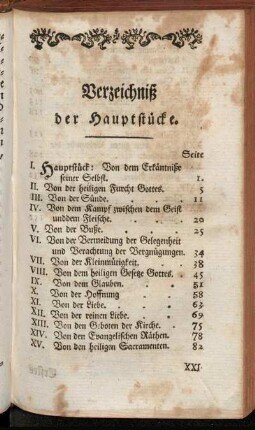 Verzeichniß
der Hauptstücke.
Seite
I. Hauptstück: Von dem Erkäntnisse
seiner Selbst. 1.
II. Von der heiligen Furcht Gottes. 5
III. Von der Sünde. 11
IV. Von dem Kampf zwischen dem Geist
unddem Fleische. 20
V. Von der Buße. 25
VI. Von der Vermeidung der Gelegenheit
und Verachtung der Vergnügungen. 34
VII. Von der Kleinmütigkeit. 38
VIII. Von dem heiligen Gesetze Gottes. 45
IX. Von dem Glauben. 51
X. Von der Hoffnung 58
XI. Von der Liebe. 63
XII. Von der reinen Liebe. 69
XIII. Von den Geboten der Kirche. 75
XIV. Von den Evangelischen Räthen. 78
XV. Von den heiligen Sacramenten. 82
XXI